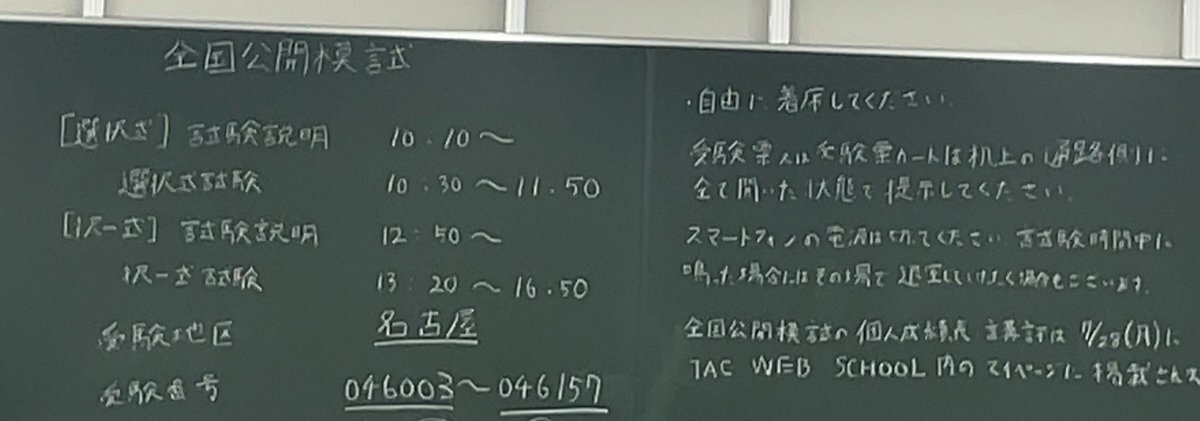 全国公開模試
[選択式] 試験説明 10:10～
選択式試験 10:30～11:50
[択一式] 試験説明 12:50～
択一式試験 13:20～16:50
受験地区 名古屋
受験番号 046003～046157
・自由に着席してください。
受験票又は受験票カートは机上の通路側に
全て開いた状態で提示してください。
スマートフォンの電源は切ってください 試験時間中に
鳴った場合にはその場で退室していただく場合もございます。
全国公開模試の個人成績表 は 7/28(月)に
TAC WEB SCHOOL 内のマイページに掲載され